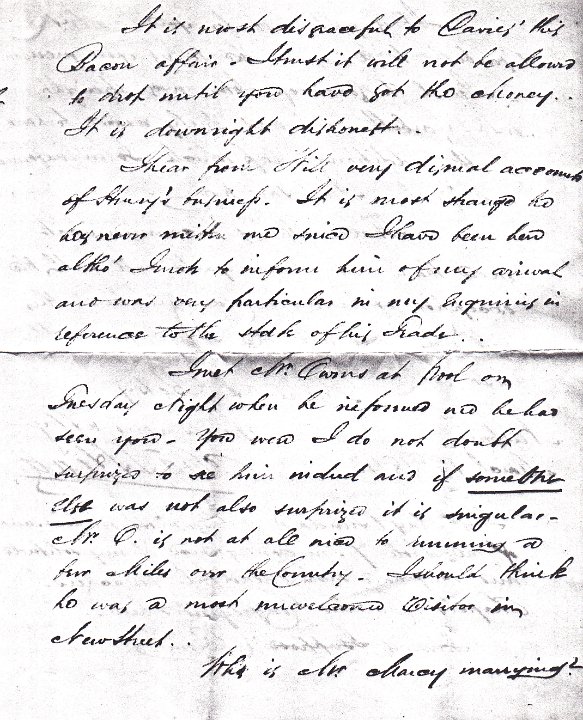 It is most disgraceful to Davies' this
Bacon affair - I trust it will not be allowed
to drop until you have got the Money.
It is downright dishonest..
I hear from Hill very dismal accounts
of Henry's business. It is most strange he
has never written me since I have been here
altho' I wrote to inform him of my arrival
and was very particular in my Enquiries in
reference to the state of his Trade..
I met Mr. Owens at Pool on
Tuesday Night when he informed me he had
seen you - You were I do not doubt
surprized to see him indeed and if some other
else was not also surprized it is singular -
Mr. O. is not at all nice to running a
few Miles over the Country - I should think
he was a most unwelcomed Visitor in
New Street..
Who is Mr. Marcy marrying?